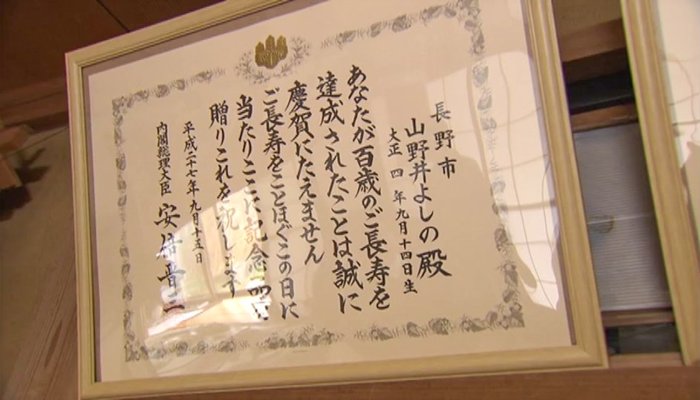 長野市
山野井よしの殿
大正四年九月十四日生
あなたが百歳のご長寿を
達成されたことは誠に
慶賀にたえません
ご長寿をことほぐこの日に
当たりここに記念品に
贈りこれを祝します
平成二十七年九月十五日
内閣総理大臣 安倍晋三